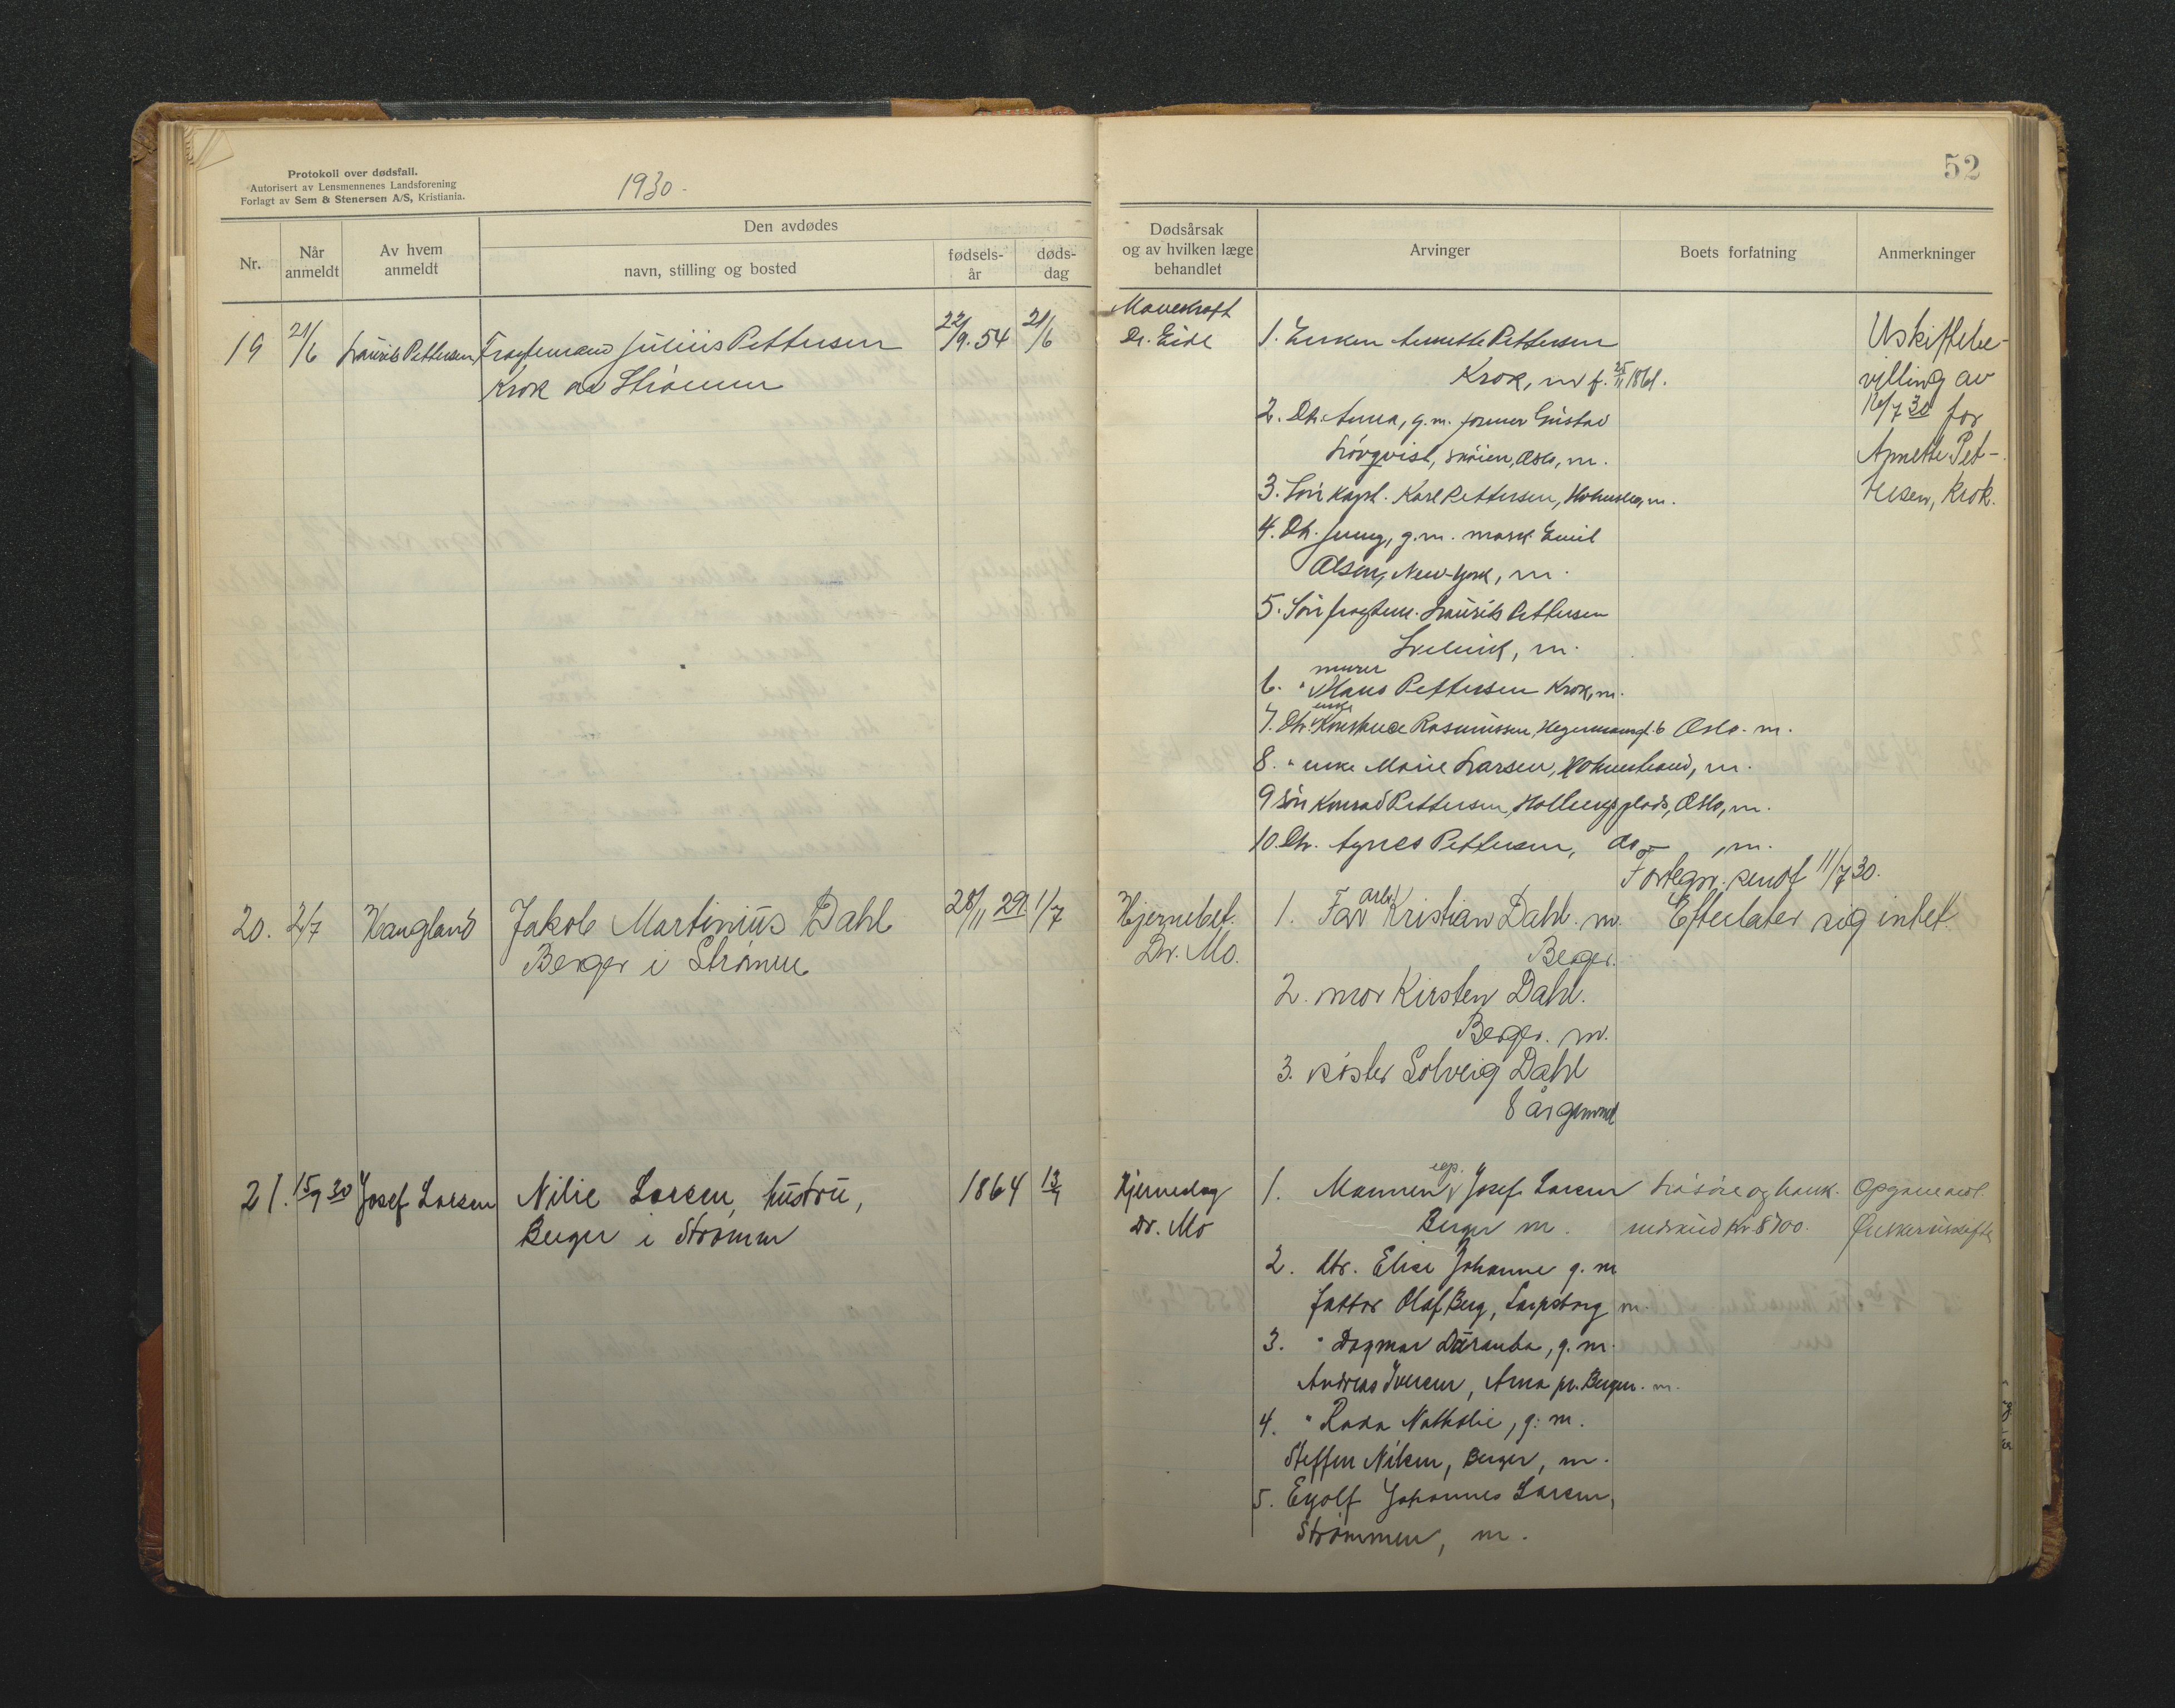 Protokoll over dødsfall.
Autorisert av Lensmennenes Landsforening
Forlagt av Sem & Stenersen A/S, Kristiania.
1930.
Nr.
Når anmeldt
Av hvem anmeldt
Den avdødes
navn, stilling og bosted
fødsels-år
døds-dag
19 21/6 Laurits Pettersen Fragtemand Julius Pettersen 22/9.54 21/6
Krok av Strømm
20. 2/7 Haugland Jakob Martinius Dahl 28/11 29. 1/7
Berger i Strømm
21. 15/9 30 Josef Larsen Nilie Larsen, hustru, 1864 13/9
Berger i Strømm
52
Dødsårsak
og av hvilken læge
behandlet
Arvinger
Boets forfatning
Anmerkninger
Mavekræft
Dr. Eide
1. Enken Annette Pettersen
Krok, m f. 25/11 1861.
2. Dtr. Anna, g.m. former Gustav
Lövqvist, Skøien, Oslo, m.
3. Søn kapt. Karl Pettersen, Holmsbo, m.
4. Dtr. Jenny, g.m. mask. Emil
Olsen, New-York, m.
5. Søn fragtem. Laurits Pettersen
Svelvik, m.
6. " murer Hans Pettersen Krok, m.
7. Dtr. enke Konstance Rasmussen, Hegermannsg. 6 Oslo. m.
8. " enke Marie Larsen, Holmestrand, m.
9 Søn Konrad Pettersen, Hollergs plads, Oslo, m.
10. Dtr. Agnes Pettersen, do , m.
Fortegn. sendt 11/7 30.
Uskiftebe-
villing av
16/7 30 for
Annette Pet-
tersen, Krok.
Hjernebet.
Dr. Mo.
1. Far arb. Kristian Dahl. m.
Berger.
2. mor Kirsten Dahl.
Berger. m.
3. søster Solveig Dahl
8 år gammel
Efterlater sig intet.
Hjerneslag
Dr. Mo
1. Mannen egp. Josef Larsen
Berger m.
2. dtr. Elise Johanne g. m
faktor Olaf Berg, Sarpsborg m.
3. " Dagmar , g. m.
Andreas Iversen, Arna pr. Bergen. m.
4. " Nathalie, g. m.
Steffen Nilsen, Berger, m.
5. Eyolf Johannes Larsen,
Strømmen, m.
Løsøre og bank-
indskud kr 8700.